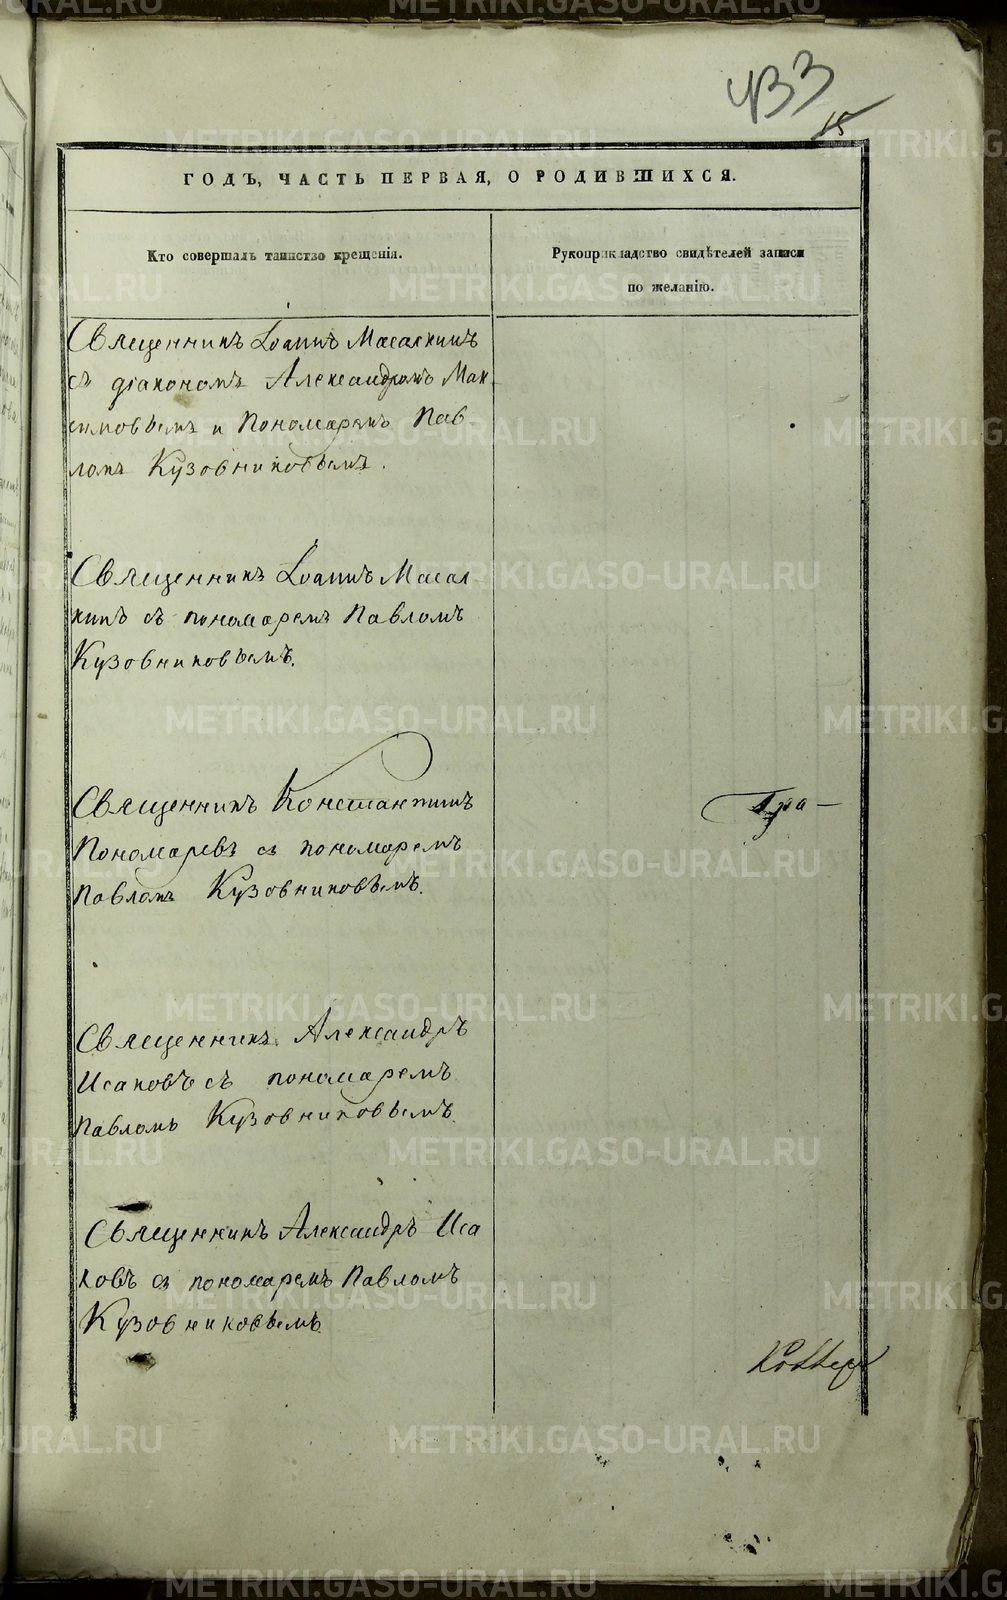 433
15
ГОДЪ, ЧАСТЬ ПЕРВАЯ, О РОДИВШИХСЯ.
Кто совершалъ таинство крещенія.
Рукоприкладство свидѣтелей записи
по желанію.
Священникъ Іоаннъ Масалкинъ
съ діакономъ Александромъ Мак-
симовымъ и Пономаремъ Пав-
ломъ Кузовниковымъ.
Священникъ Іоаннъ Масал-
кинъ съ пономаремъ Павломъ
Кузовниковымъ.
Священникъ Константинъ
Пономаревъ съ пономаремъ
Павломъ Кузовниковымъ.
Священникъ Александръ
Исаковъ съ пономаремъ
Павломъ Кузовниковымъ.
Священникъ Александръ Иса
ковъ съ пономаремъ Павломъ
Кузовниковымъ.
METRIKI.GASO-URAL.RU